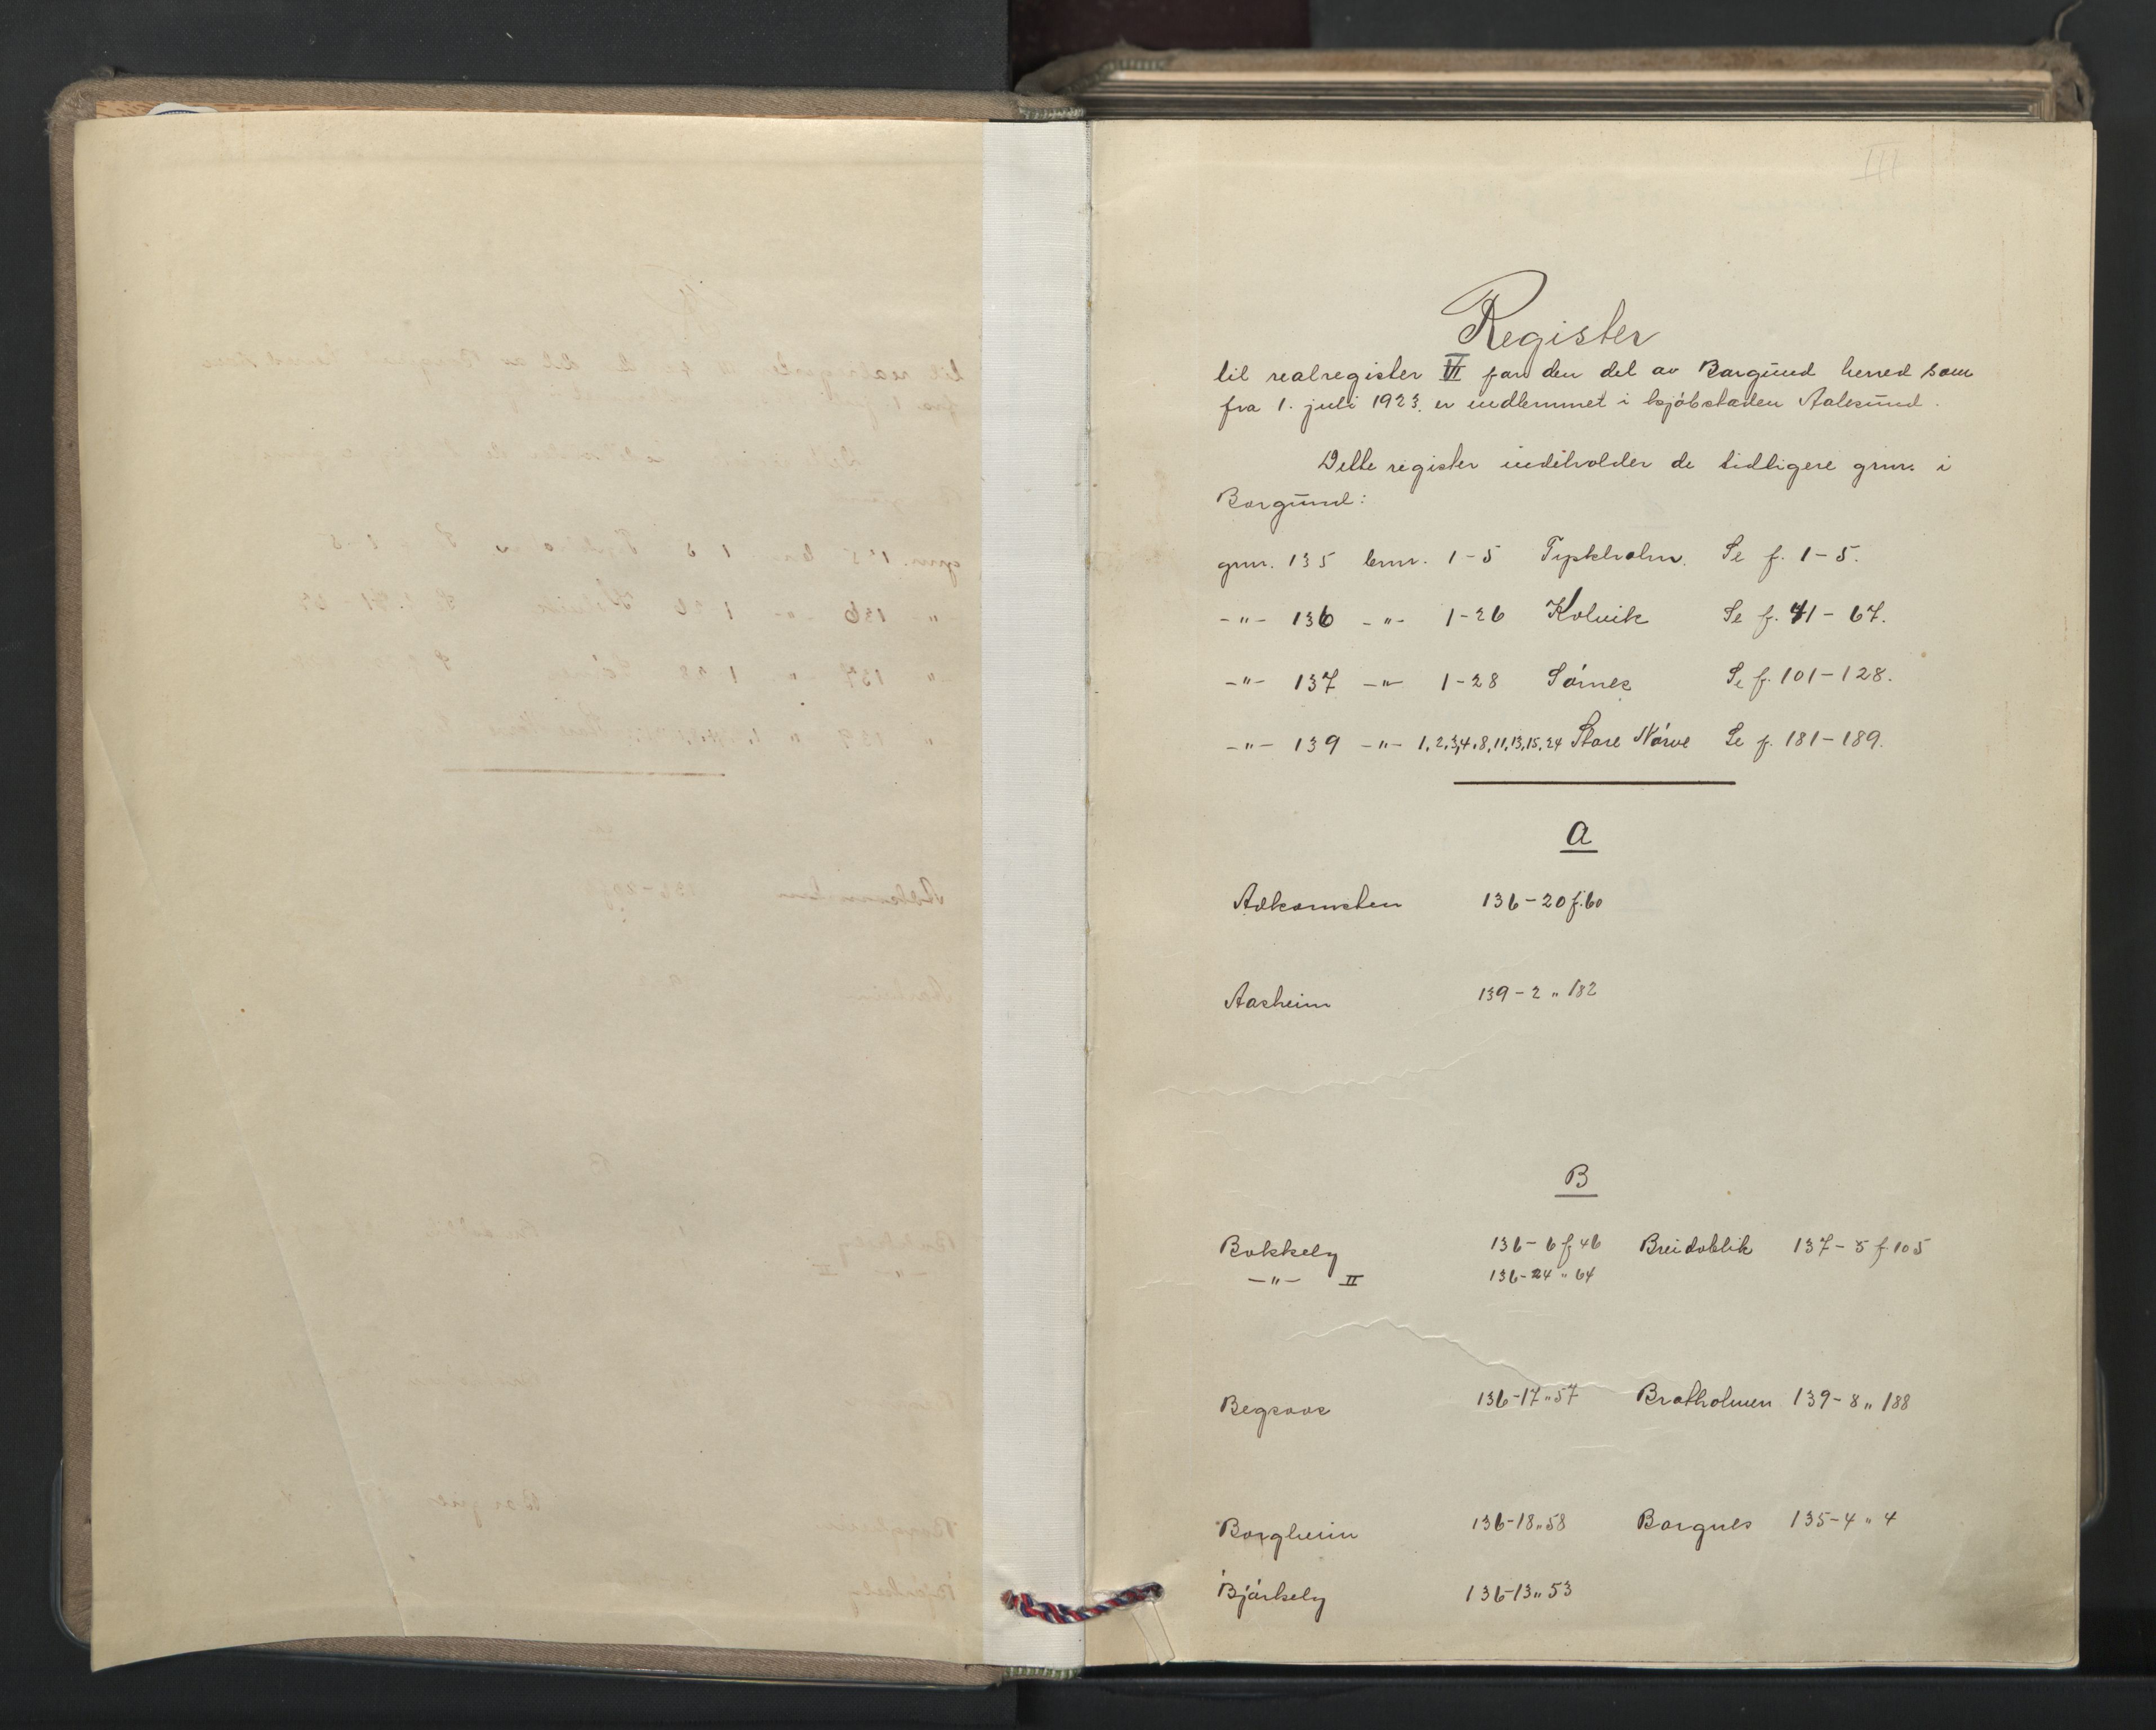 III
Register
til realregister VI for den del av Borgund herred som
fra 1. juli 1923 er indlemmet i kjöbstaden Aalesund.
Dette register indeholder de tidligere grnr. i
Borgund:
grnr. 135 brnr. 1-5 Fipkholm. Se f. 1-5.
-"- 136 -"- 1-26 Kolvik Se f. 41-67.
-"- 137 -"- 1-28 Sörnes Se f. 101-128.
-"- 139 -"- 1,2,3,4,8,11,13,15,24 Store Nörve Se f. 181-189.
A
Adkomsten 136-20 f. 60
Aasheim 139-2 " 182
B
Bakkely 136-6 f 46 Breidablik 137-5 f. 105
-"- II 136-24 " 64
136-17 " 57 Bratholmen 139-8 " 188
Borgheim 136-18 " 58 Borgnes 135-4 " 4
Bjårkely 136-13 " 53